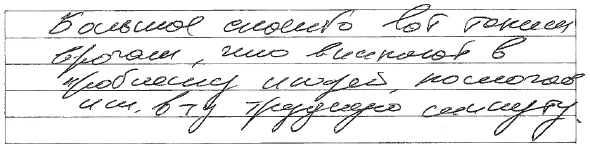 Большое спасибо вот таким
врачам, что вникают в
проблему людей, помогая
им. в ту трудную минуту.